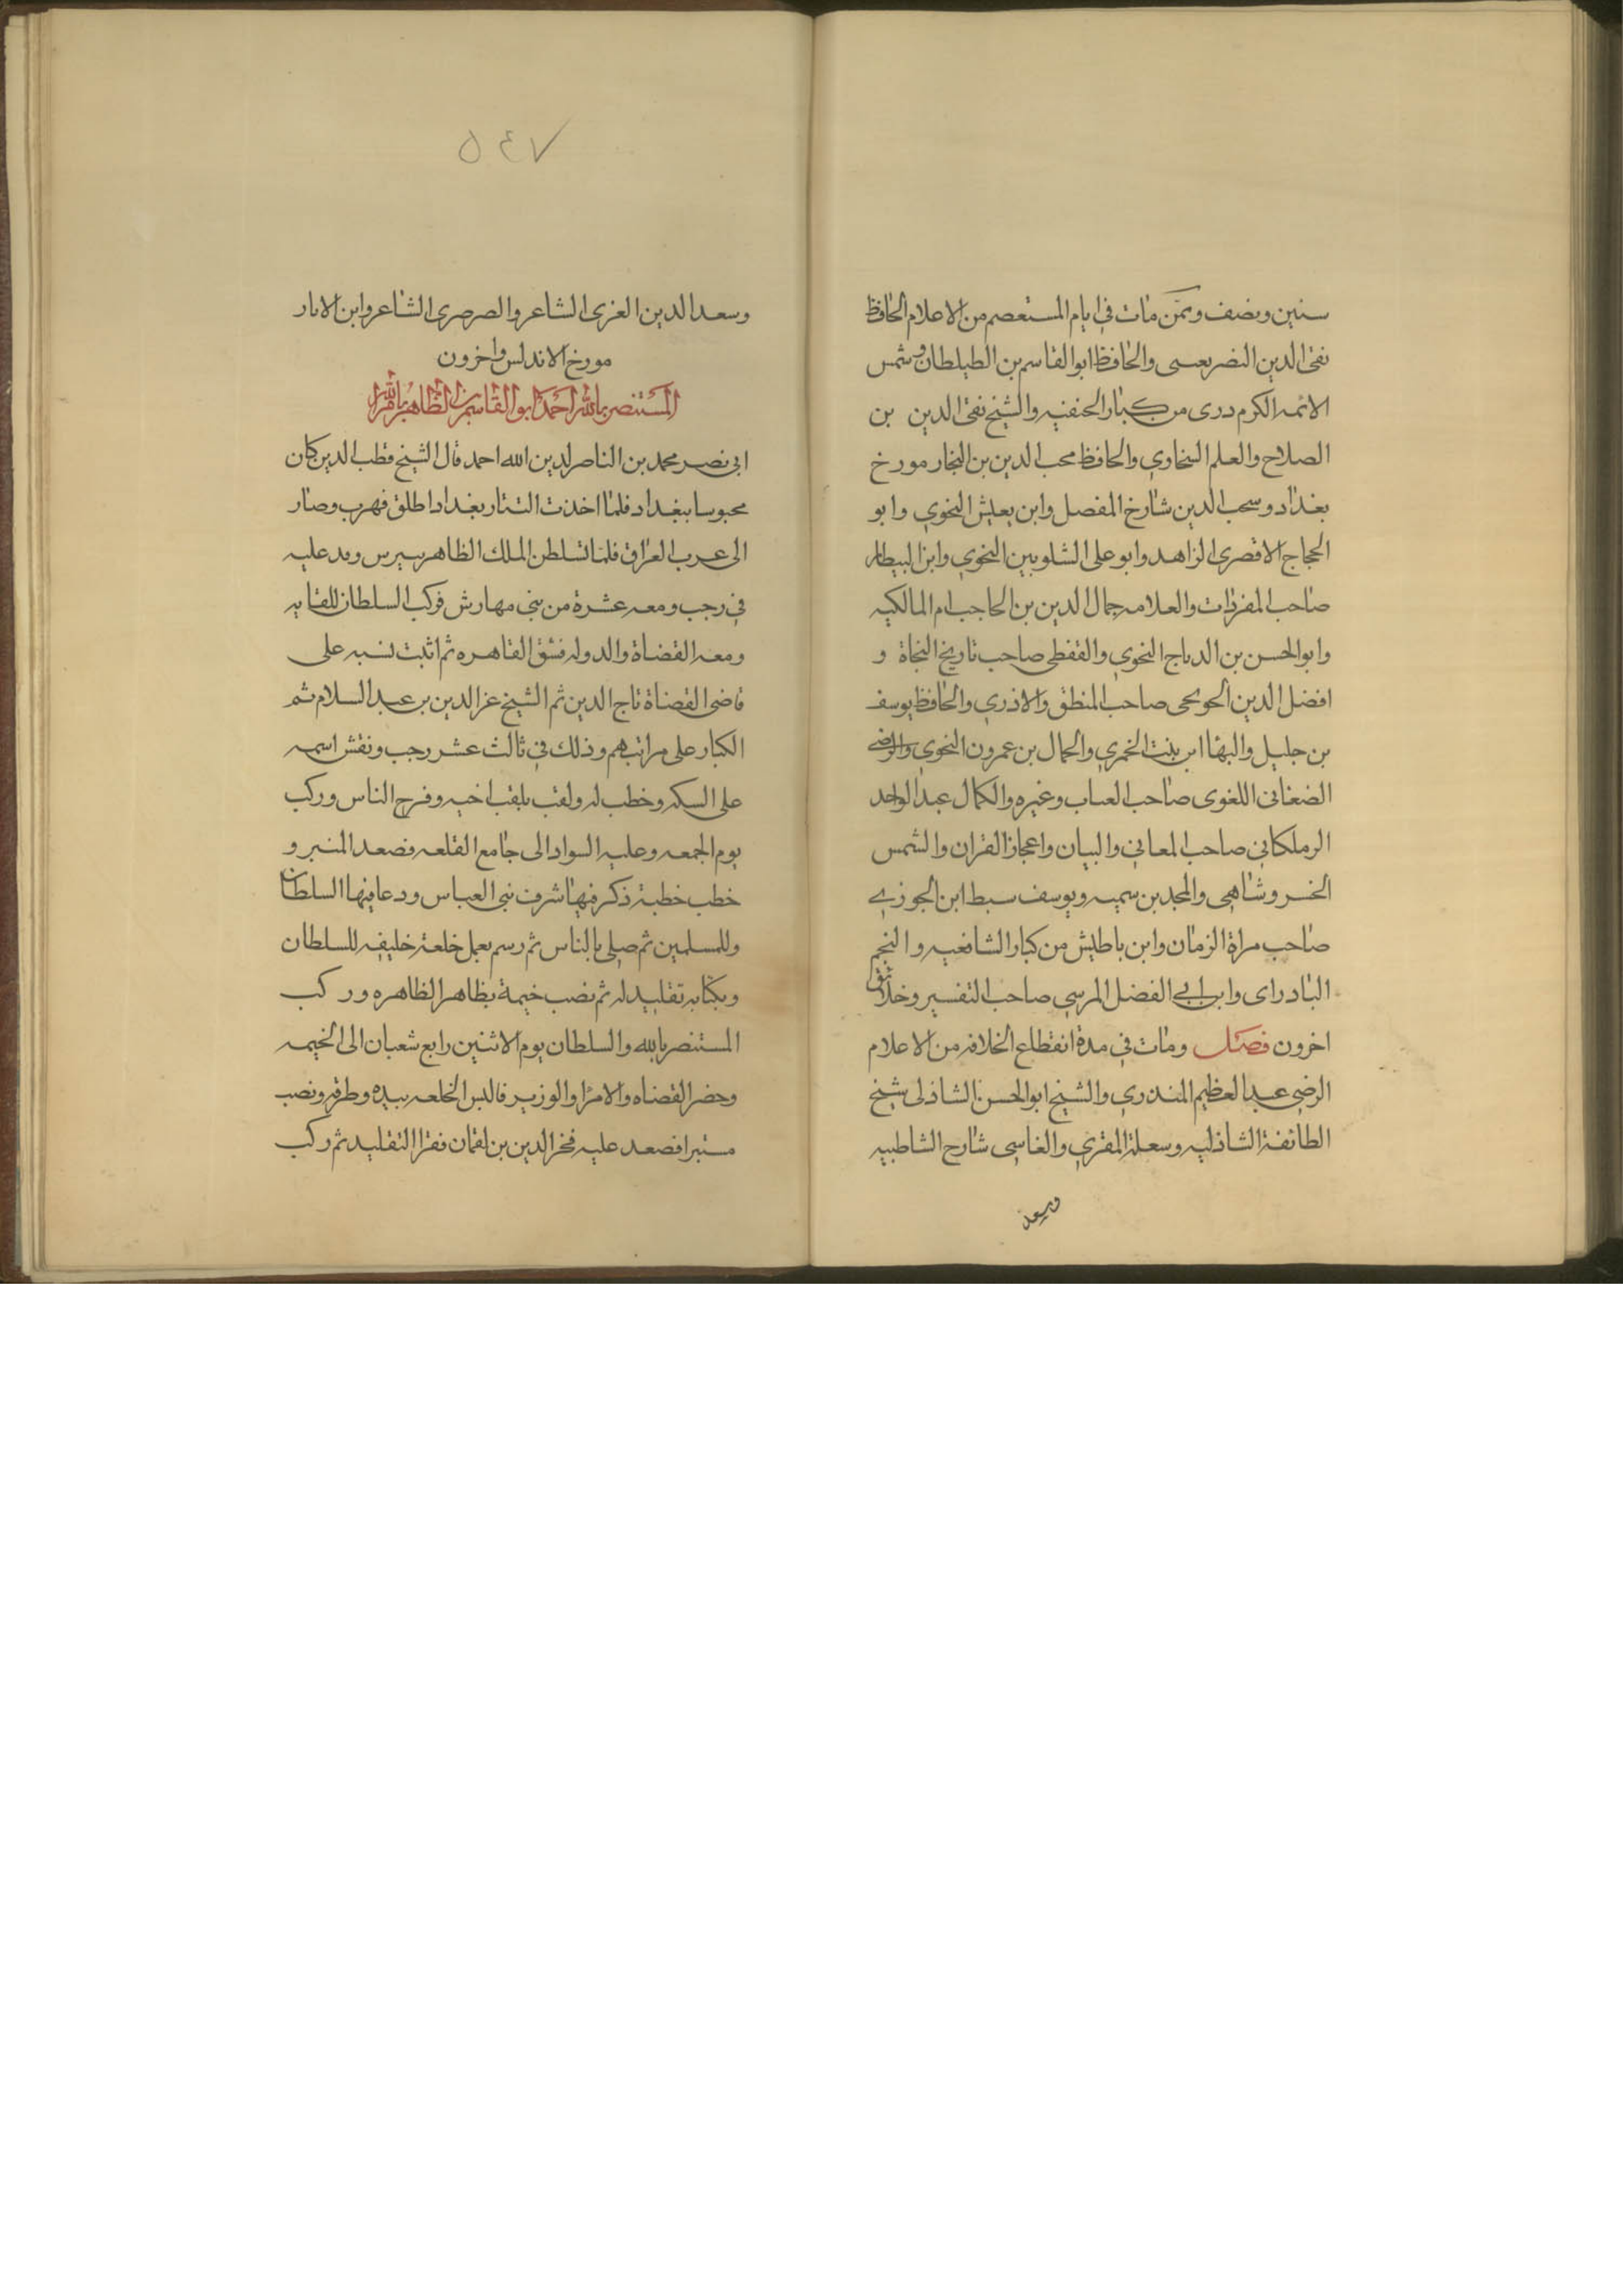 سنين ونصف وممن مات في ايام المستعصم من الاعلام الحافظ
تقي الدين النصريفسي والحافظ ابوالقاسم بن الطيلطان وشمس
الائمه الكرم دري من كبار الحنفيه والشيخ تقي الدين بن
الصلاح والعلم السخاوي والحافظ محب الدين بن النجار مورخ
بغداد وسحب الدين شارخ المفصل وابن يعيش النحوي وابو
الحجاج الاقصري الزاهد وابو علي الشلوبين النحوي وابن البيطار
صاحب المفردات والعلامه جمال الدين بن الحاجب ام المالكيه
وابو الحسن بن الدباج النحوي والقفطي صاحب تاريخ النحاة و
افضل الدين الخونجي صاحب المنطق والاذري والحافظ يوسف
بن خليل والبها ابن بنت الخمري والجمال بن عمرون النحوي والرضي
الصغاني اللغوي صاحب العباب وغيره والكمال عبد الواحد
الزملكاني صاحب المعاني والبيان واعجاز القران والشمس
الخسروشاهي والمجد بن تيميه ويوسف سبط ابن الجوزي
صاحب مراة الزمان وابن باطيش من كبار الشافعيه والنجم
البادراي وابن ابي الفضل المرسي صاحب التفسير وخلائق
اخرون فصل ومات في مدة انقطاع الخلافه من الاعلام
الرضي عبد العظيم المنذري والشيخ ابو الحسن الشاذلي شيخ
الطائفة الشاذليه وسعلة المقري والفاسي شارح الشاطبيه
وسعد
٥٤٧
وسعد الدين العزي الشاعر والصرصري الشاعر وابن الابار
مورخ الاندلس واخرون
المستنصر بالله احمد ابو القاسم بن الظاهر بامر الله
ابي نصر محمد بن الناصر لدين الله احمد قال الشيخ قطب الدين كان
محبوسا ببغداد فلما اخذت التتار بغداد اطلق فهرب وصار
الى عرب العراق فلما تسلطن الملك الظاهر بيبرس وفد عليه
في رجب ومعه عشرة من بني مهارش فركب السلطان للقايه
ومعه القضاة والدوله فشق القاهره ثم اثبت نسبه على
قاضي القضاة تاج الدين ثم الشيخ عز الدين بن عبد السلام ثم
الكبار على مراتبهم وذلك في ثالث عشر رجب ونقش اسمه
على السكه وخطب له ولقب بلقب اخيه وفرح الناس وركب
يوم الجمعه وعليه السواد الى جامع القلعه فصعد المنبر و
خطب خطبة ذكر فيها شرف بني العباس ودعا فيها السلطان
وللمسلمين ثم صلى بالناس ثم رسم بعمل خلعة خليفه للسلطان
وبكتابه تقليد له ثم نصب خيمة بظاهر الظاهره وركب
المستنصر بالله والسلطان يوم الاثنين رابع شعبان الى الخيمه
وحضر القضاه والامرا والوزير فالبس الخلعه بيده وطرقه ونصب
منبرا فصعد عليه فخر الدين بن لقمان فقرا التقليد ثم ركب